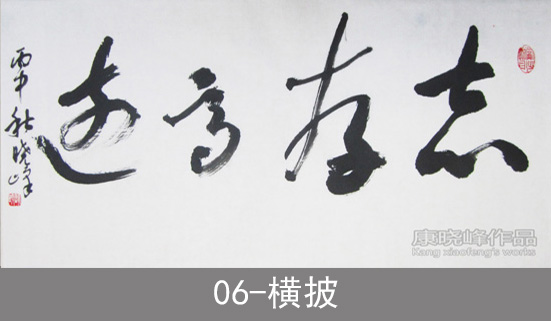 志存高远
丙申秋晓峰
康晓峰作品
Kang xiaofeng's works
06-横披